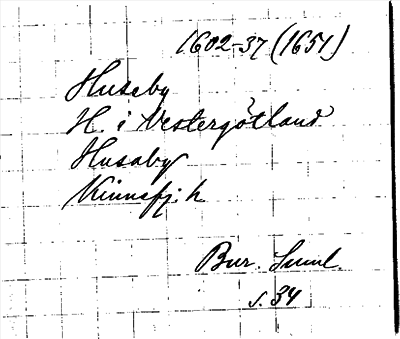 1602-37 (1651)
Huseby
H. i Vestergötland
Husaby
Kinnefj. h.
Bur. Suml.
s. 34